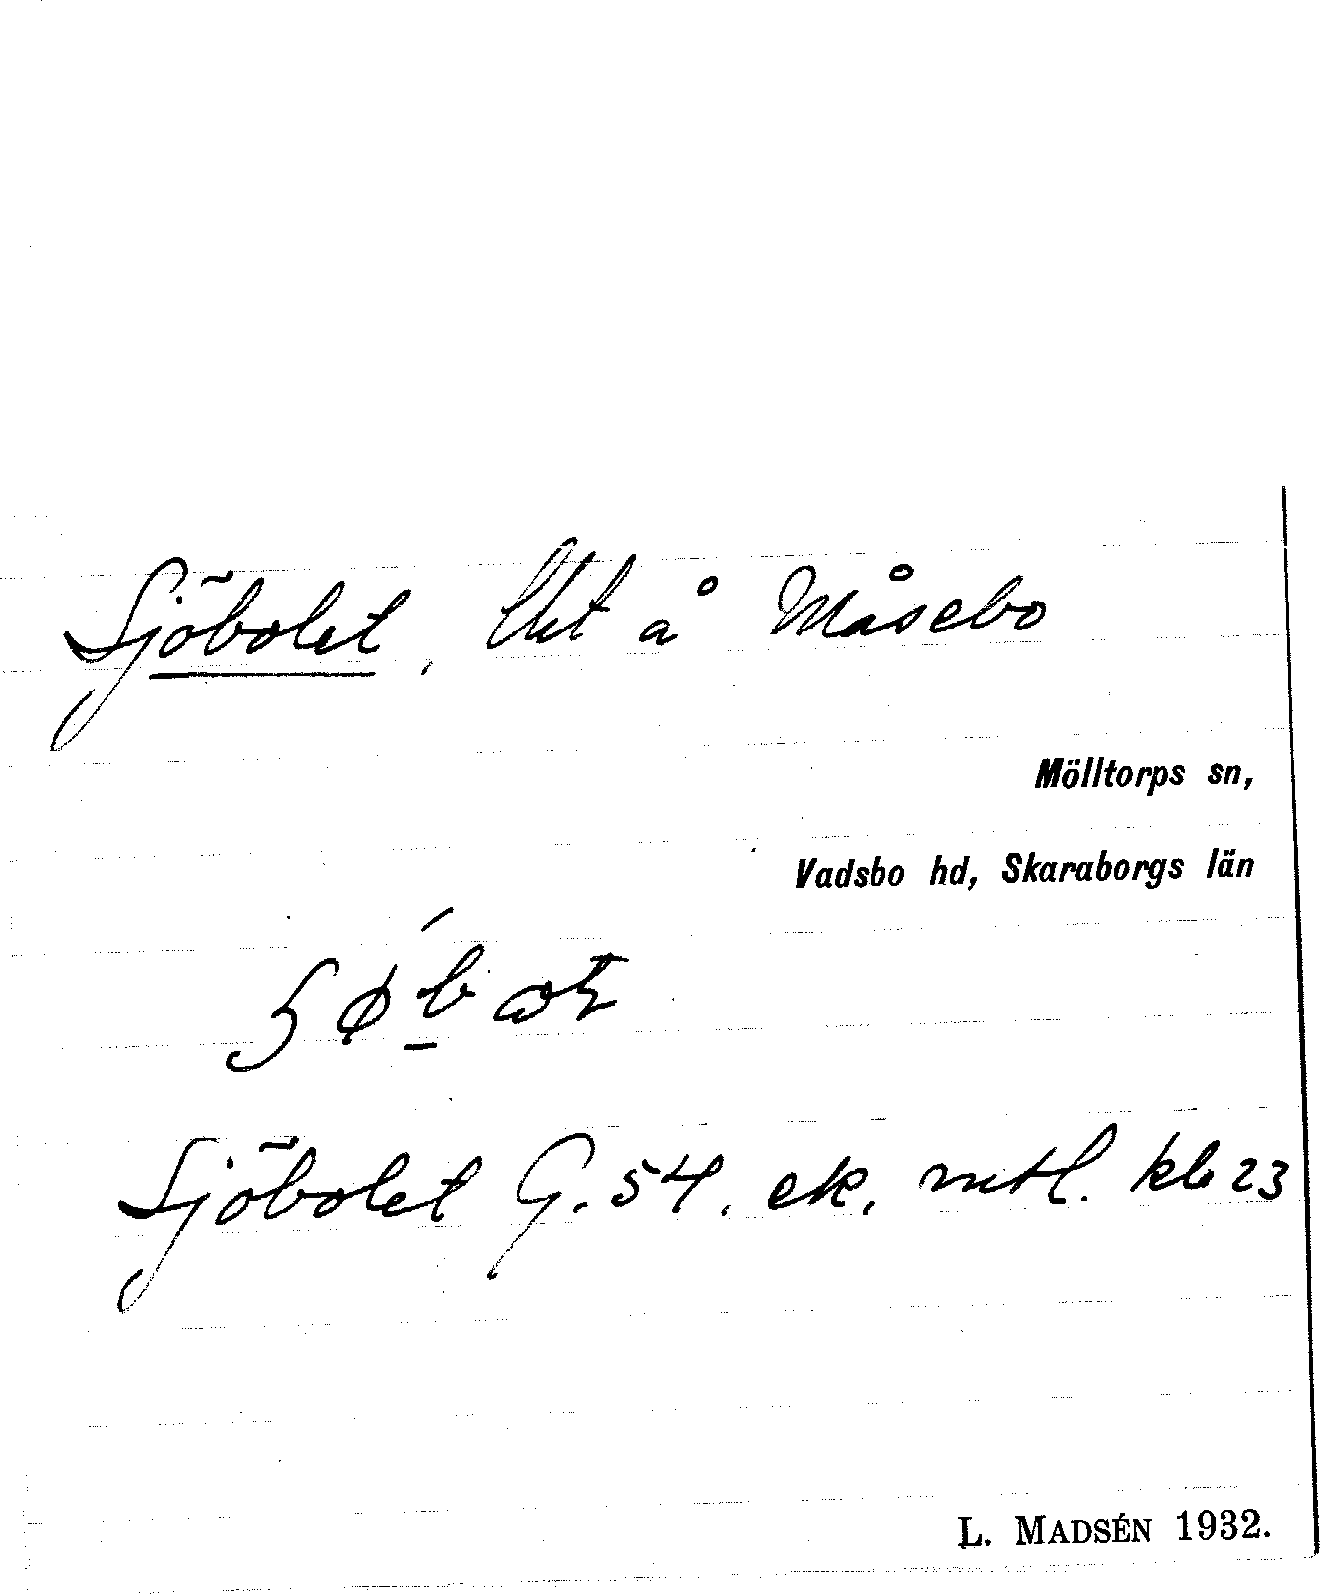 Sjöbolet, lht å Måsebo
Mölltorps sn,
Vadsbo hd, Skaraborgs län
Sjöbolet G. 54. ek. mtl. kbr 23
L. MADSÉN 1932.